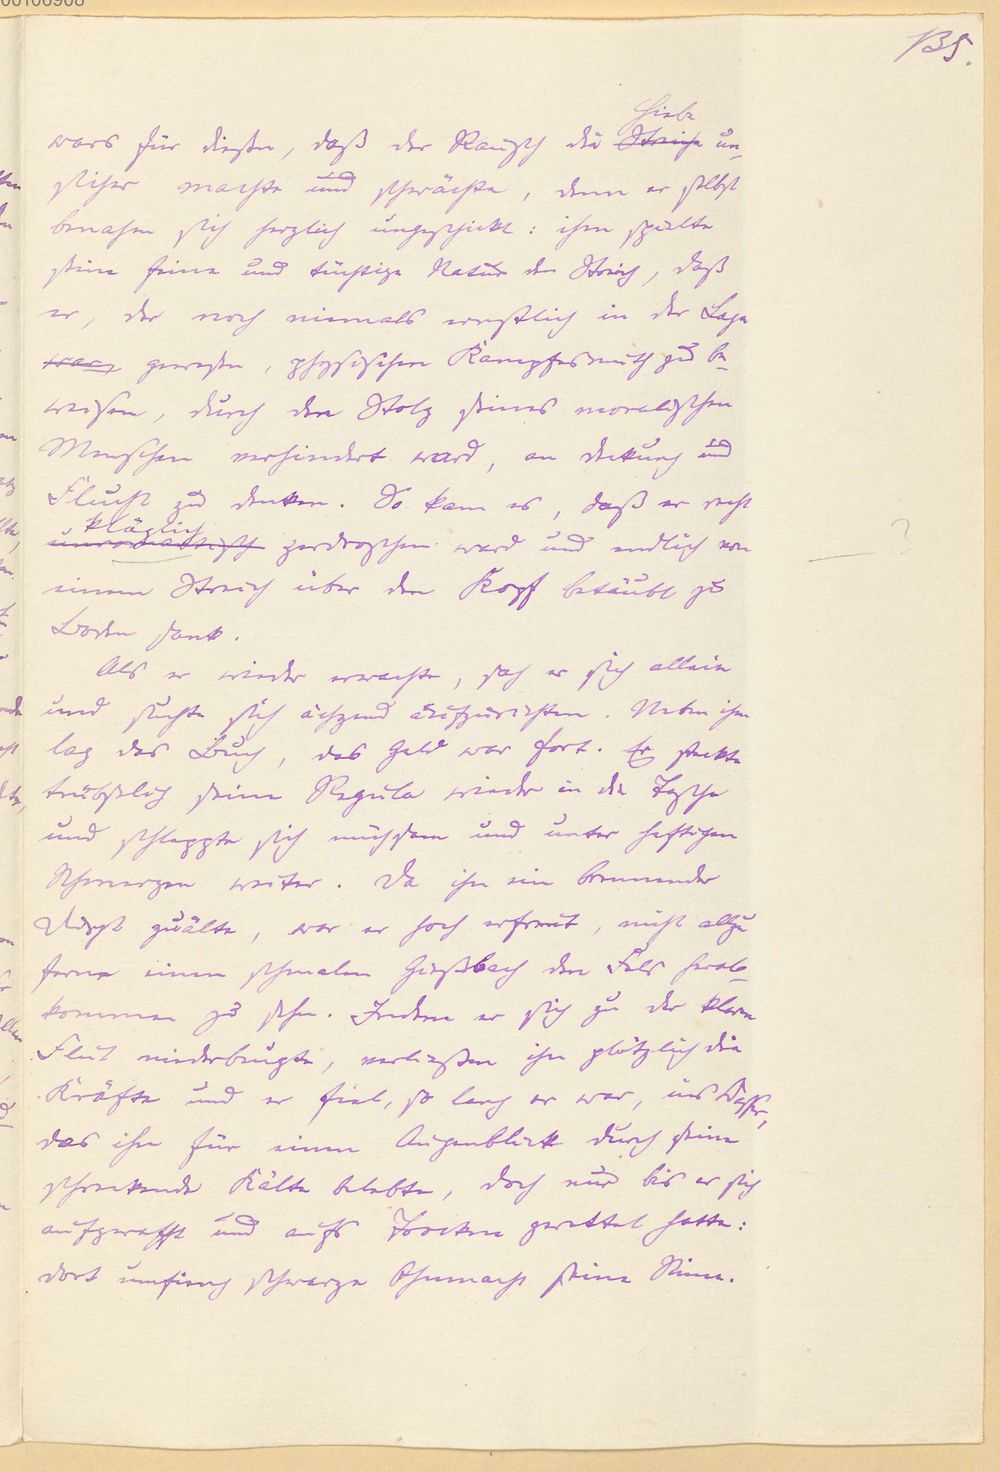 00106908
135.
Hiebe
wars für diesen, daß der Rausch die Streiche un-
sicher machte und schwächte, denn er selbst
benahm sich herzlich ungeschickt: ihm spielte
seine feine und tüchtige Natur den Streich, daß
er, der noch niemals ernstlich in der Lage
war, gewesen, physischen Kampfesmuth zu be-
weisen, durch den Stolz seines moralischen
Menschen verhindert ward, an Deckung und
Flucht zu denken. So kam es, daß er recht
kläglich
unromantisch zerdroschen ward und endlich von
einem Streich über den Kopf betäubt zu
Boden sank.
Als er wieder erwachte, sah er sich allein
und suchte sich ächzend aufzurichten. Neben ihm
lag das Buch, das Geld war fort. Er steckte
trübselig seine Regula wieder in die Tasche
und schleppte sich mühsam und unter heftigen
Schmerzen weiter. Da ihn ein brennender
Durst quälte, war er hoch erfreut, nicht allzu
ferne einen schmalen Gießbach den Fels herab-
kommen zu sehn. Indem er sich zu der klaren
Flut niederbeugte, verließen ihn plötzlich die
Kräfte und er fiel, so lang er war, ins Wasser,
das ihn für einen Augenblick durch seine
schreckende Kälte belebte, doch nur bis er sich
aufgerafft und aufs Trockene gerettet hatte:
dort umfieng schwarze Ohnmacht seine Sinne.